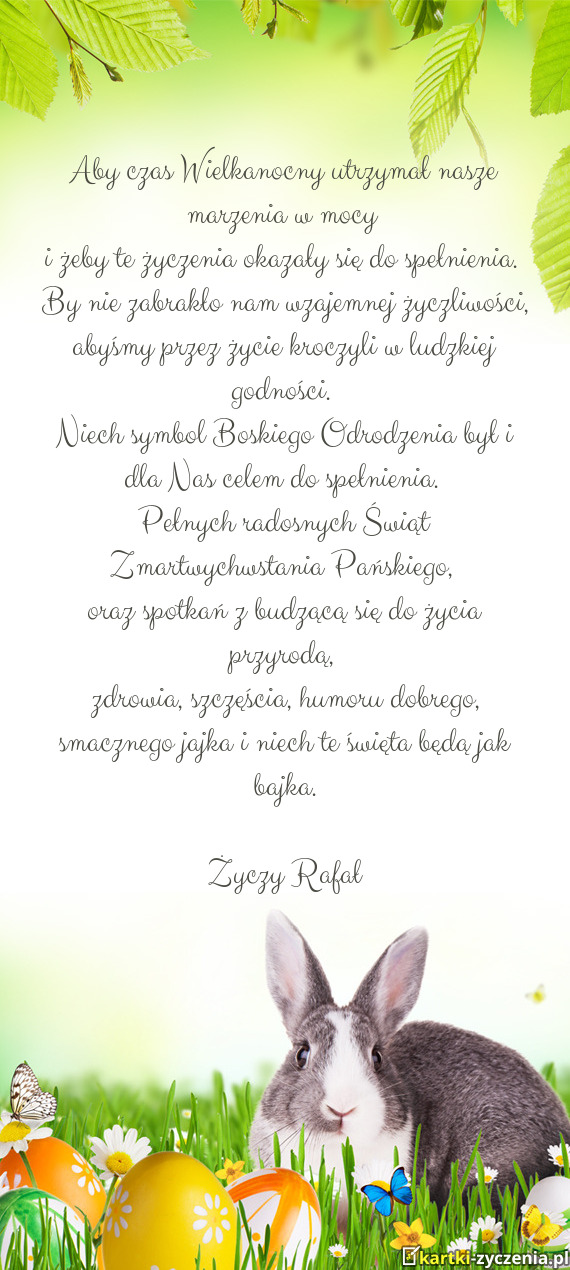 Aby czas Wielkanocny utrzymał nasze
marzenia w mocy
i żeby te życzenia okazały się do spełnienia.
By nie zabrakło nam wzajemnej życzliwości,
abyśmy przez życie kroczyli w ludzkiej
godności.
Niech symbol Boskiego Odrodzenia był i
dla Nas celem do spełnienia.
Pełnych radosnych Świąt
Zmartwychwstania Pańskiego,
oraz spotkań z budzącą się do życia
przyrodą,
zdrowia, szczęścia, humoru dobrego,
smacznego jajka i niech te święta będą jak
bajka.
Życzy Rafał
kartki-zyczenia.pl